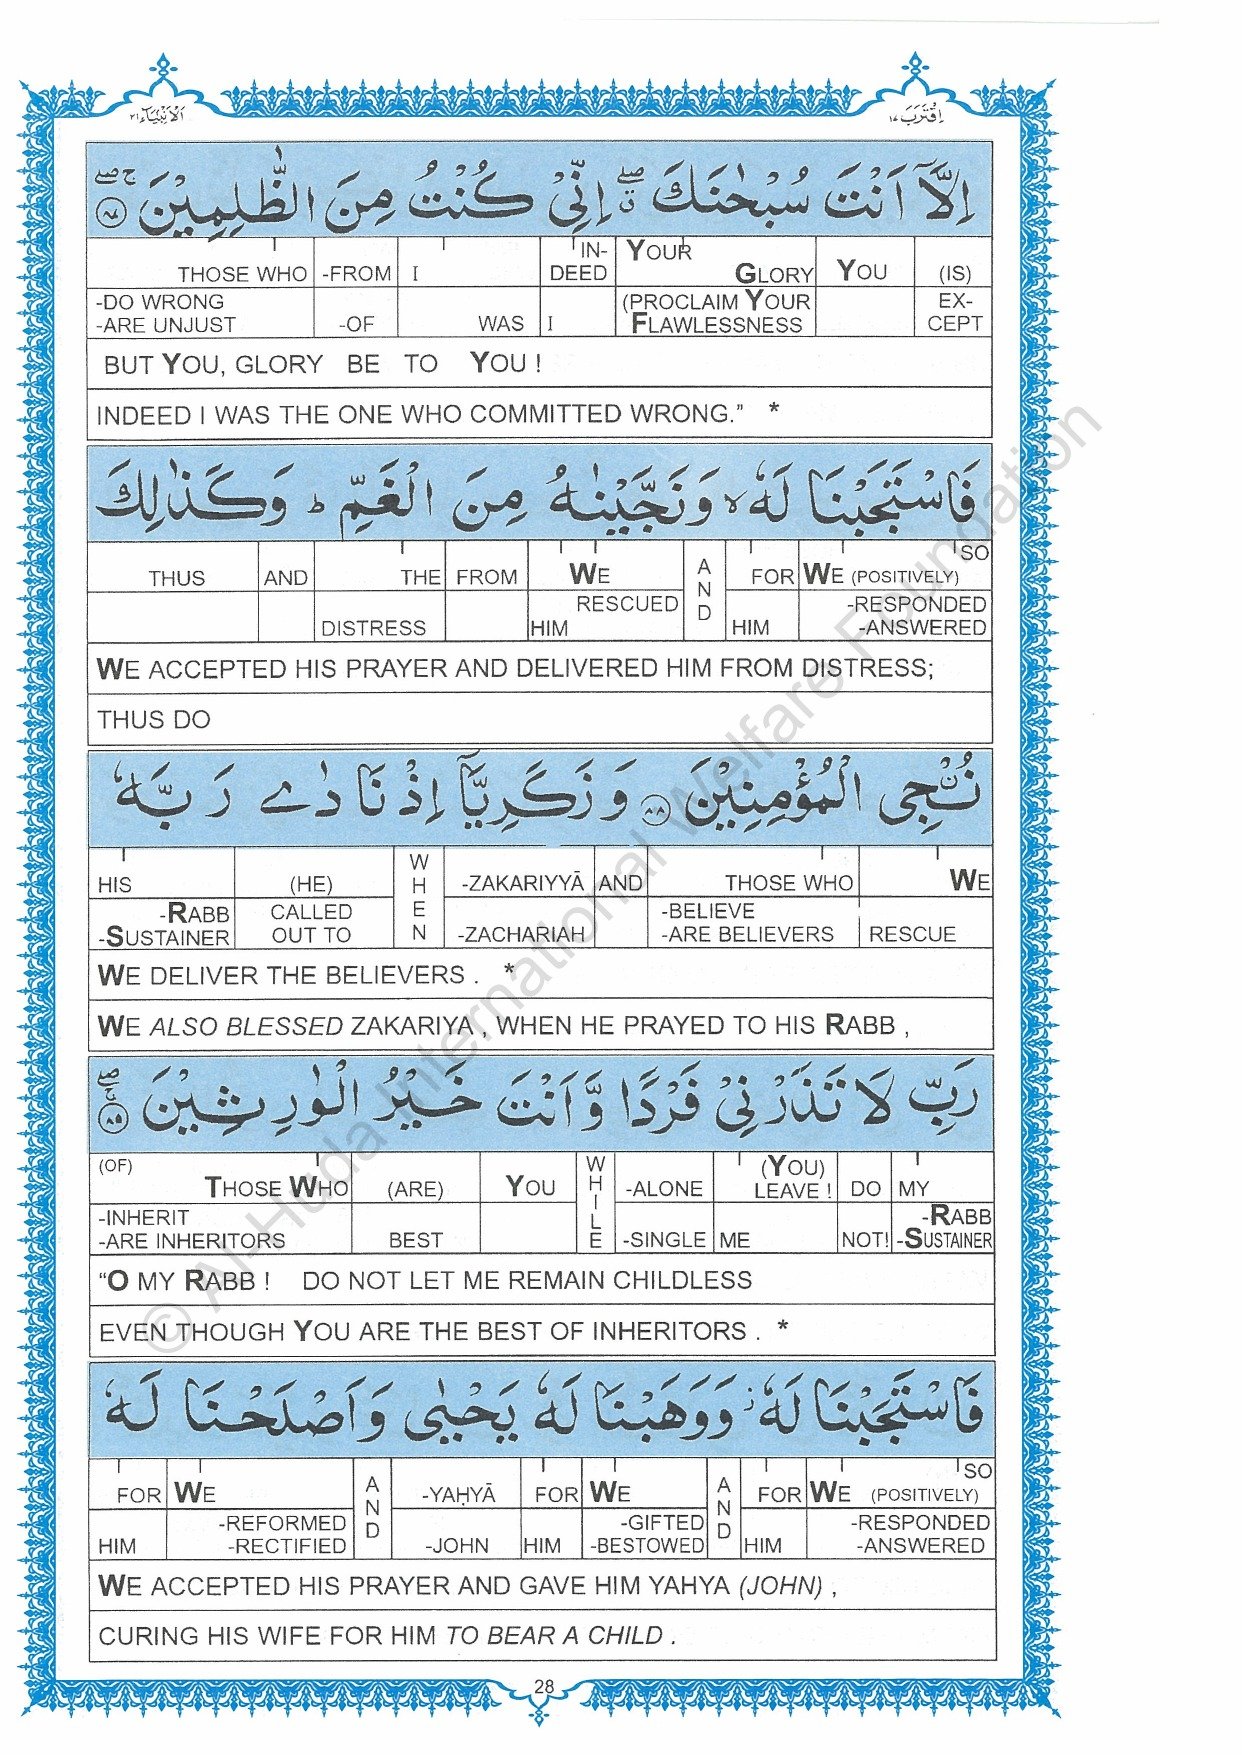 الانبياء ٢١
اقترب ١٧
اِلَّآ اَنْتَ سُبْحٰنَكَ ۖ اِنِّیْ كُنْتُ مِنَ الظّٰلِمِیْنَ ﴿٨٧﴾
THOSE WHO -FROM I IN- YOUR
DEED GLORY YOU (IS)
-DO WRONG (PROCLAIM YOUR EX-
-ARE UNJUST -OF WAS I FLAWLESSNESS CEPT
BUT YOU, GLORY BE TO YOU !
INDEED I WAS THE ONE WHO COMMITTED WRONG.” *
فَاسْتَجَبْنَا لَهٗ ۙ وَنَجَّیْنٰهُ مِنَ الْغَمِّ ؕ وَكَذٰلِكَ
SO
THUS AND THE FROM WE A FOR WE (POSITIVELY)
RESCUED N -RESPONDED
DISTRESS HIM D HIM -ANSWERED
WE ACCEPTED HIS PRAYER AND DELIVERED HIM FROM DISTRESS;
THUS DO
نُـْۨجِی الْمُؤْمِنِیْنَ ﴿٨٨﴾ وَزَكَرِیَّآ اِذْ نَادٰی رَبَّهٗ
HIS (HE) WHEN -ZAKARIYYĀ AND THOSE WHO WE
-RABB CALLED -BELIEVE
-SUSTAINER OUT TO -ZACHARIAH -ARE BELIEVERS RESCUE
WE DELIVER THE BELIEVERS . *
WE ALSO BLESSED ZAKARIYA , WHEN HE PRAYED TO HIS RABB ,
رَبِّ لَا تَذَرْنِیْ فَرْدًا وَّاَنْتَ خَیْرُ الْوٰرِثِیْنَ ﴿٨٩﴾
(OF) (YOU)
THOSE WHO (ARE) YOU WHILE -ALONE LEAVE ! DO MY
-INHERIT -RABB
-ARE INHERITORS BEST -SINGLE ME NOT! -SUSTAINER
“O MY RABB ! DO NOT LET ME REMAIN CHILDLESS
EVEN THOUGH YOU ARE THE BEST OF INHERITORS . *
فَاسْتَجَبْنَا لَهٗ ۫ وَوَهَبْنَا لَهٗ یَحْیٰی وَاَصْلَحْنَا لَهٗ
SO
FOR WE AND -YAḤYĀ FOR WE AND FOR WE (POSITIVELY)
-REFORMED -GIFTED -RESPONDED
HIM -RECTIFIED -JOHN HIM -BESTOWED HIM -ANSWERED
WE ACCEPTED HIS PRAYER AND GAVE HIM YAHYA (JOHN) ,
CURING HIS WIFE FOR HIM TO BEAR A CHILD .
28
© Al-Huda International Welfare Foundation